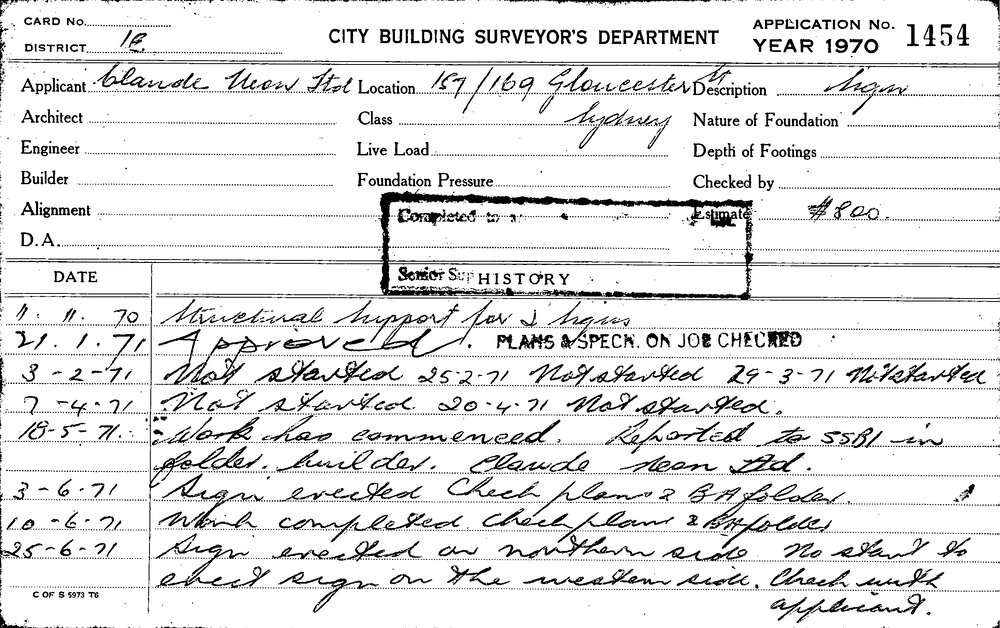 CARD No.
DISTRICT 1B
CITY BUILDING SURVEYOR'S DEPARTMENT
APPLICATION No.
YEAR 1970
1454
Applicant Claude Neon Ltd Location 157/169 Gloucester St Description Sign
Architect Class Sydney Nature of Foundation
Engineer Live Load Depth of Footings
Builder Foundation Pressure Checked by
Alignment Completed to Estimate $800.
D.A.
Senior
DATE HISTORY
11. 11. 70 Structural support for 2 signs
21. 1. 71 Approved. PLANS & SPECN. ON JOB CHECKED
3-2-71 Not started 25-2-71 Not started 29-3-71 Not started
7-4-71 Not started 20-4-71 Not started.
18-5-71. Work has commenced. Reported to SSBI in
folder. builder. Claude Neon Ltd.
3-6-71 Sign erected Check plans & BA folder.
10-6-71 Work completed Check plans & BA folder
25-6-71 Sign erected on northern side No start to
erect sign on the western side. Check with
applicant.
C OF S 5973 T6